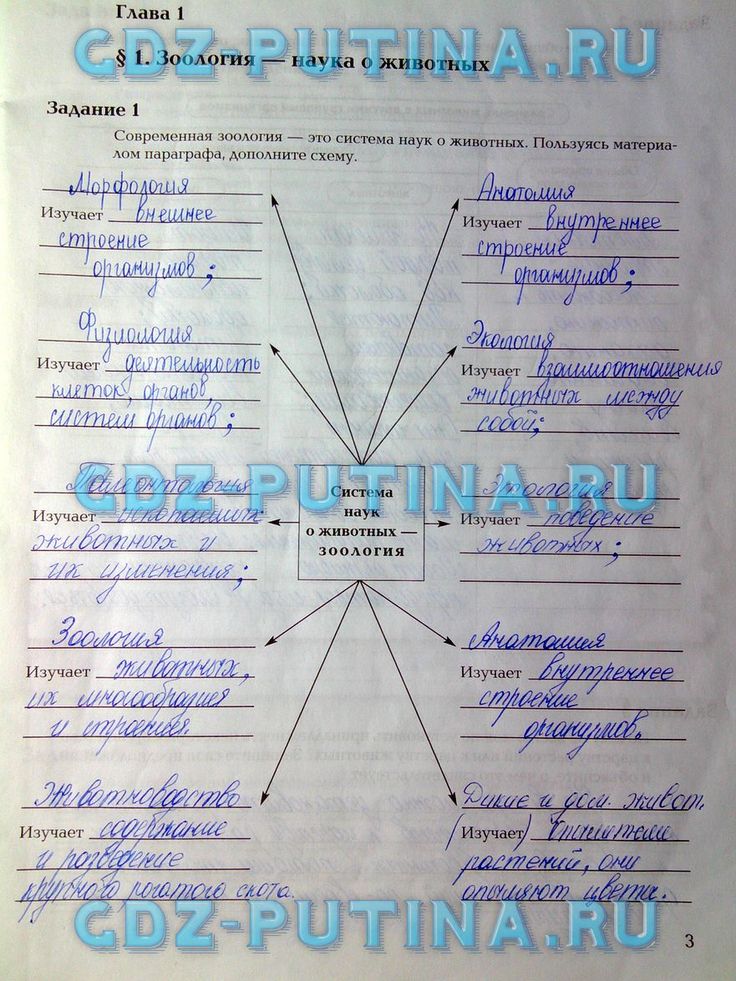 Глава 1
GDZ-PUTINA.RU
§ 1. Зоология — наука о животных
Задание 1
Современная зоология — это система наук о животных. Пользуясь материа-
лом параграфа, дополните схему.
Морфология
Изучает внешнее
строение
организмов;
Анатомия
Изучает внутреннее
строение
организмов;
Физиология
Изучает деятельность
клеток, органов,
систем органов;
Экология
Изучает взаимоотношения
животных между
собой;
GDZ-PUTINA.RU
Система
наук
о животных —
зоология
Палеонтология
Изучает ископаемых
животных и
их изменения;
Этология
Изучает поведение
животных;
Зоология
Изучает животных,
их многообразия
и строения.
Анатомия
Изучает внутреннее
строение
организмов.
Животноводство
Изучает содержание
и разведение
крупного рогатого скота.
Дикие и дом. живот.
(Изучает)
растений, они
опыляют цветы.
GDZ-PUTINA.RU
3